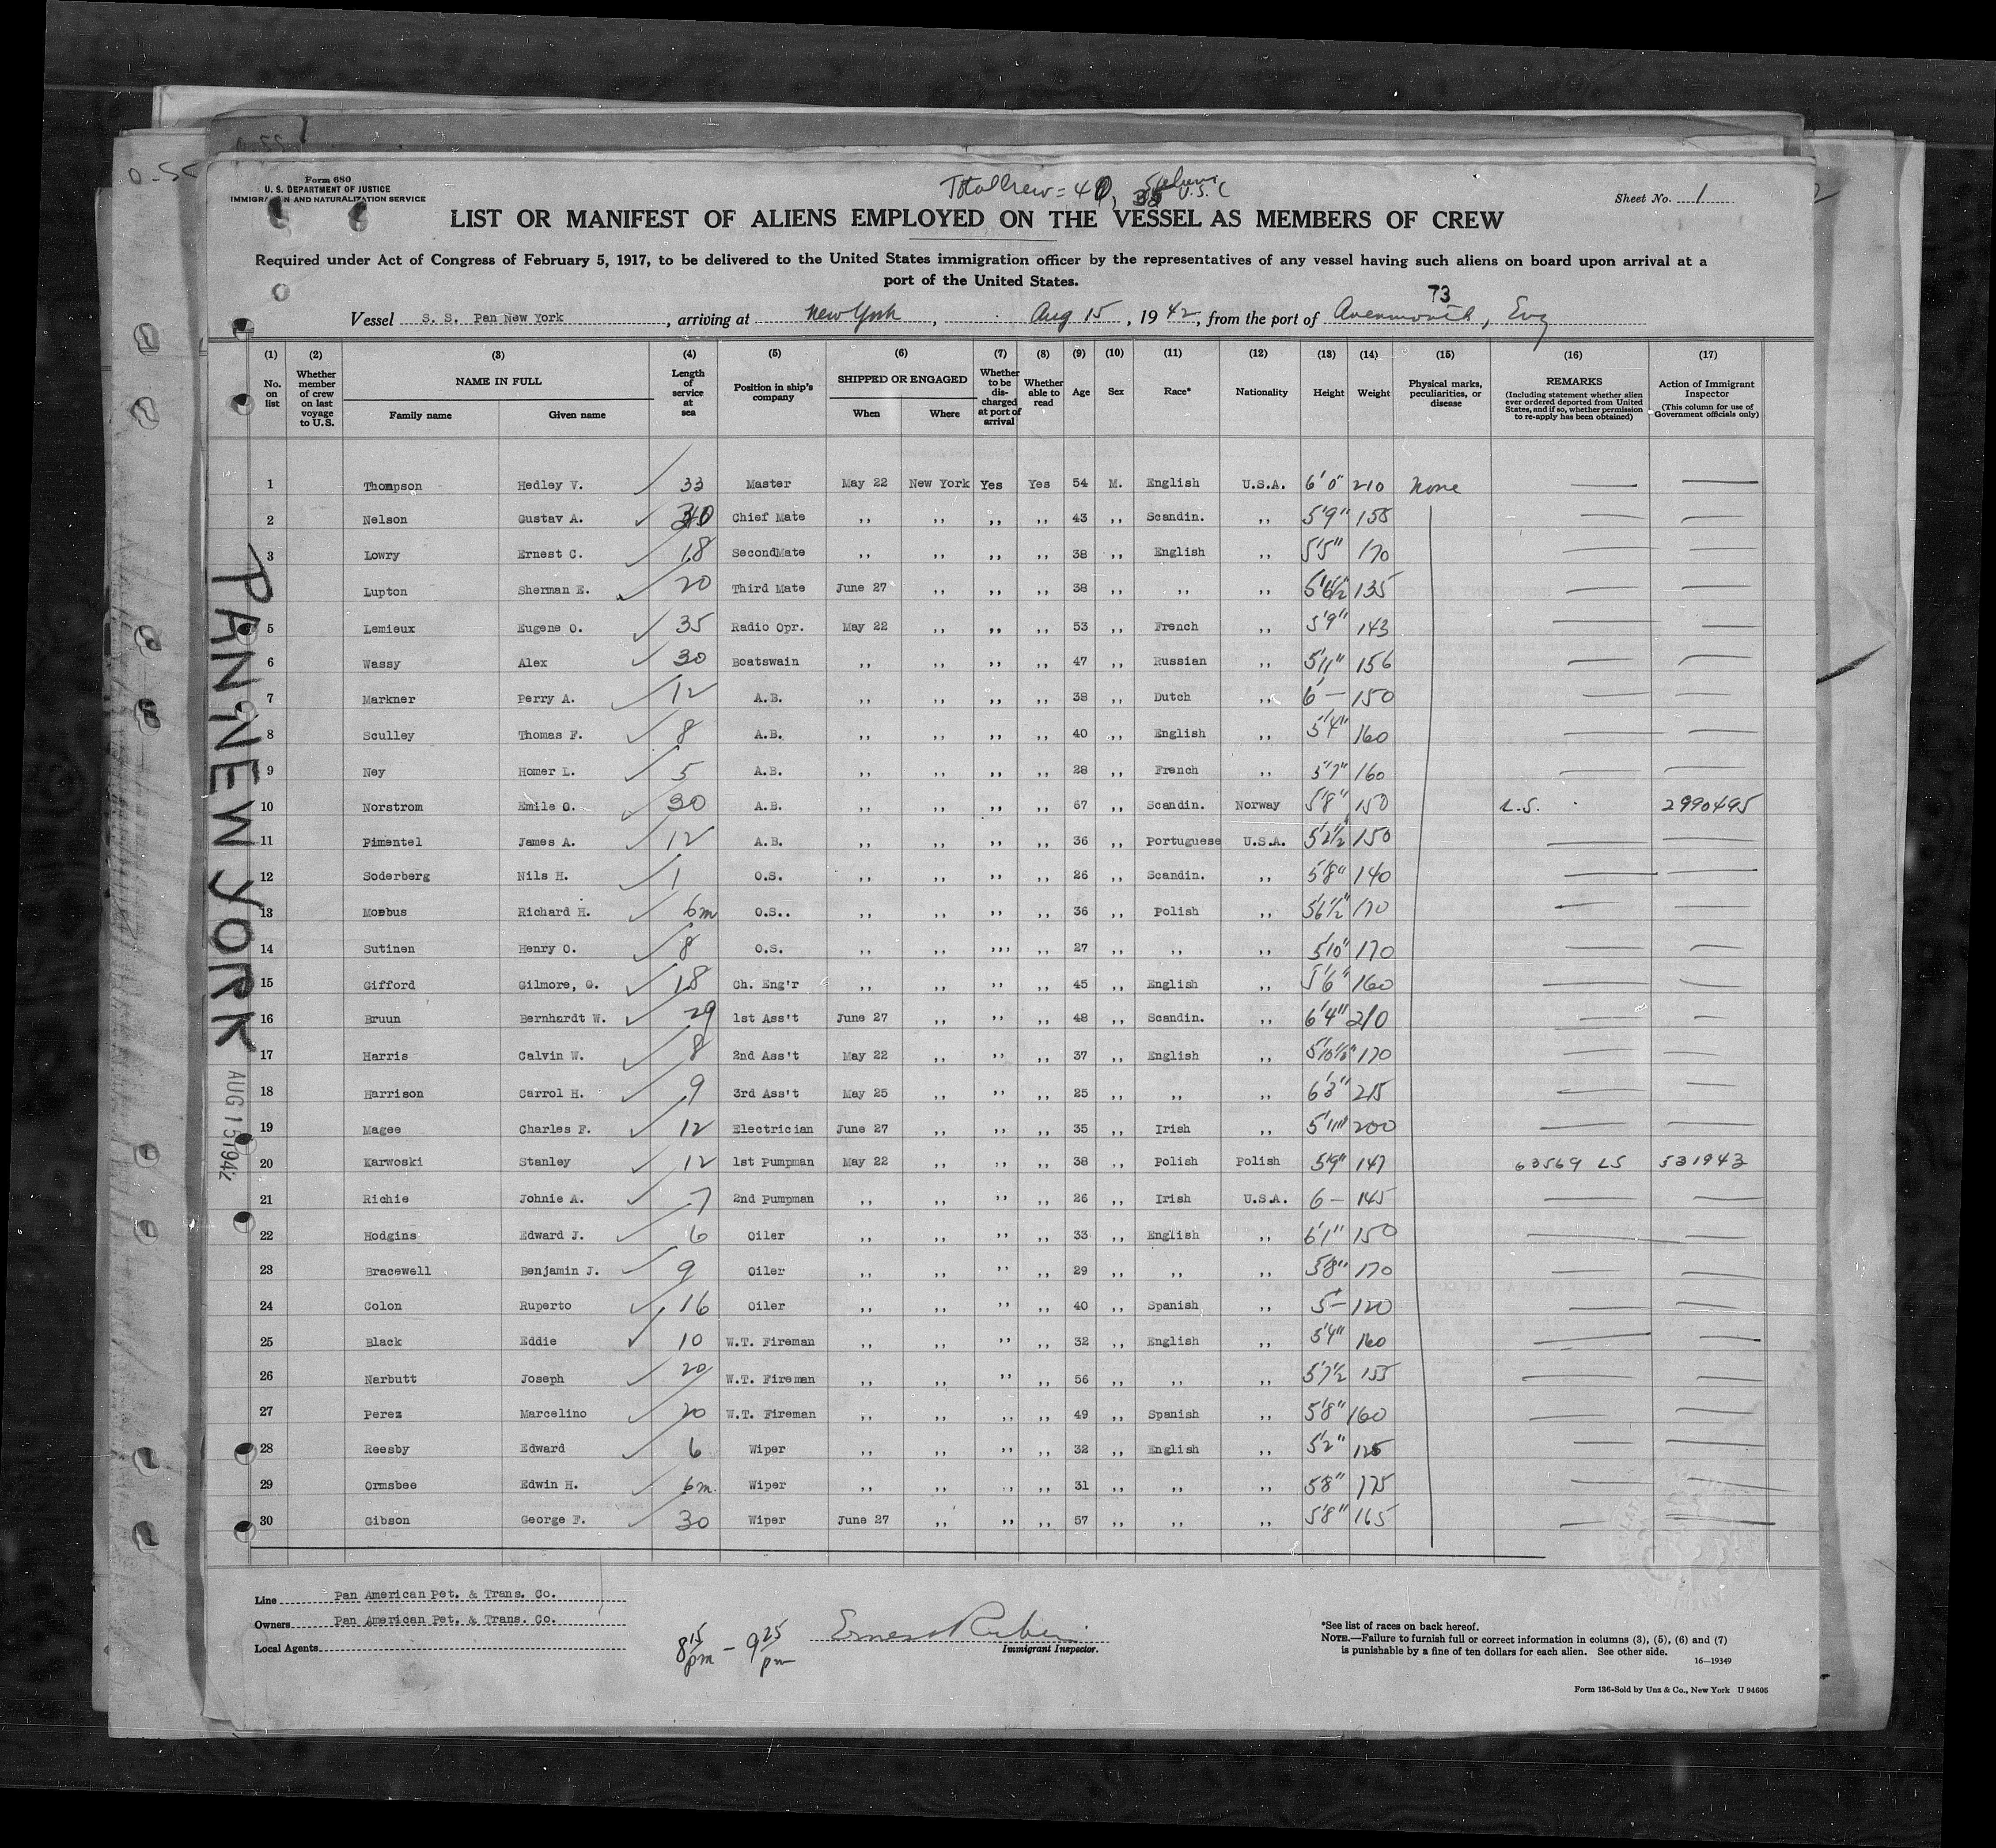 Form 680
U. S. DEPARTMENT OF JUSTICE
IMMIGRATION AND NATURALIZATION SERVICE
Total Crew = 40, 35 U.S.C
Sheet No. 1
LIST OR MANIFEST OF ALIENS EMPLOYED ON THE VESSEL AS MEMBERS OF CREW
Required under Act of Congress of February 5, 1917, to be delivered to the United States immigration officer by the representatives of any vessel having such aliens on board upon arrival at a
port of the United States.
73
Vessel S. S. Pan New York, arriving at New York, Aug 15, 1942, from the port of Avonmouth, Eng
(1) (2) (3) (4) (5) (6) (7) (8) (9) (10) (11) (12) (13) (14) (15) (16) (17)
No. on list
Whether member of crew on last voyage to U.S.
NAME IN FULL
Family name Given name
Length of service at sea
Position in ship's company
SHIPPED OR ENGAGED
When Where
Whether to be discharged at port of arrival
Whether able to read
Age
Sex
Race*
Nationality
Height
Weight
Physical marks, peculiarities, or disease
REMARKS
(Including statement whether alien ever ordered deported from United States, and if so, whether permission to re-apply has been obtained)
Action of Immigrant Inspector
(This column for use of Government officials only)
1 Thompson Hedley V. 33 Master May 22 New York Yes Yes 54 M. English U.S.A. 6'0" 210 None — —
2 Nelson Gustav A. Chief Mate ,, ,, ,, ,, 43 ,, Scandin. ,, 5'9" 158 — —
3 Lowry Ernest C. 18 SecondMate ,, ,, ,, ,, 38 ,, English ,, 5'5" 170 — —
Lupton Sherman E. 20 Third Mate June 27 ,, ,, ,, 38 ,, ,, ,, 5'6½ 135 — —
5 Lemieux Eugene O. 35 Radio Opr. May 22 ,, ,, ,, 53 ,, French ,, 5'9" 143 — —
6 Wassy Alex 30 Boatswain ,, ,, ,, ,, 47 ,, Russian ,, 5'11" 156 — —
7 Markner Perry A. 12 A.B. ,, ,, ,, ,, 38 ,, Dutch ,, 6' — 150 — —
8 Sculley Thomas F. 8 A.B. ,, ,, ,, ,, 40 ,, English ,, 5'4" 160 — —
9 Ney Homer L. 5 A.B. ,, ,, ,, ,, 28 ,, French ,, 5'7" 160 — —
10 Norstrom Emile O. 30 A.B. ,, ,, ,, ,, 67 ,, Scandin. Norway 5'8" 150 L.S. 2990495
11 Pimentel James A. 12 A.B. ,, ,, ,, ,, 36 ,, Portuguese U.S.A. 5'2½ 150 — —
12 Soderberg Nils H. 1 O.S. ,, ,, ,, ,, 26 ,, Scandin. ,, 5'8" 140 — —
13 Moebus Richard H. 6m O.S.. ,, ,, ,, ,, 36 ,, Polish ,, 5'6½" 170 — —
14 Sutinen Henry O. 8 O.S. ,, ,, ,,, ,, 27 ,, ,, ,, 5'10" 170 — —
15 Gifford Gilmore, G. 18 Ch. Eng'r ,, ,, ,, ,, 45 ,, English ,, 5'6" 160 — —
16 Bruun Bernhardt W. 29 1st Ass't June 27 ,, ,, ,, 48 ,, Scandin. ,, 6'4" 210 — —
17 Harris Calvin W. 8 2nd Ass't May 22 ,, ,, ,, 37 ,, English ,, 5'10½" 170 — —
18 Harrison Carrol H. 9 3rd Ass't May 25 ,, ,, ,, 25 ,, ,, ,, 6'3" 215 — —
19 Magee Charles F. 12 Electrician June 27 ,, ,, ,, 35 ,, Irish ,, 5'11" 200 — —
20 Karwoski Stanley 12 1st Pumpman May 22 ,, ,, ,, 38 ,, Polish Polish 5'9" 147 63569 LS 531943
21 Richie Johnie A. 7 2nd Pumpman ,, ,, ,, ,, 26 ,, Irish U.S.A. 6 — 145 — —
22 Hodgins Edward J. 6 Oiler ,, ,, ,, ,, 33 ,, English ,, 6'1" 150 — —
23 Bracewell Benjamin J. 9 Oiler ,, ,, ,, ,, 29 ,, ,, ,, 5'8" 170 — —
24 Colon Ruperto 16 Oiler ,, ,, ,, ,, 40 ,, Spanish ,, 5' — 120 — —
25 Black Eddie 10 W.T. Fireman ,, ,, ,, ,, 32 ,, English ,, 5'4" 160 — —
26 Narbutt Joseph 20 W.T. Fireman ,, ,, ,, ,, 56 ,, ,, ,, 5'7½ 155 — —
27 Perez Marcelino 20 W.T. Fireman ,, ,, ,, ,, 49 ,, Spanish ,, 5'8" 160 — —
28 Reesby Edward 6 Wiper ,, ,, ,, ,, 32 ,, English ,, 5'2" 125 — —
29 Ormsbee Edwin H. 6m. Wiper ,, ,, ,, ,, 31 ,, ,, ,, 5'8" 175 — —
30 Gibson George F. 30 Wiper June 27 ,, ,, ,, 57 ,, ,, ,, 5'8" 165 — —
PAN NEW YORK
AUG 15 1942
Line Pan American Pet. & Trans. Co.
Owners Pan American Pet. & Trans. Co.
Local Agents
8 15 pm — 9 25 pm
Ernest Rubin
Immigrant Inspector.
*See list of races on back hereof.
NOTE.—Failure to furnish full or correct information in columns (3), (5), (6) and (7)
is punishable by a fine of ten dollars for each alien. See other side.
16—19349
Form 136-Sold by Unz & Co., New York U 94605